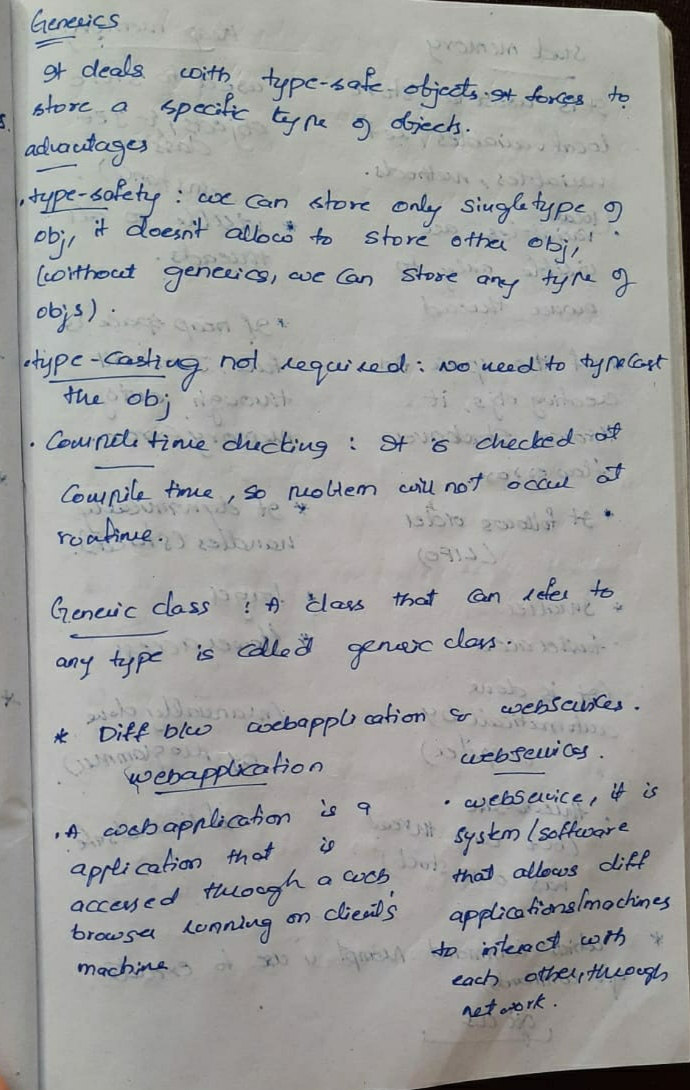 Generics
It deals with type-safe objects. It forces to
store a specific type of objects.
advantages
. type-safety : we can store only single type of
obj, it doesn't allow to store other obj,
(without generics, we can store any type of
objs).
. type-casting not required : No need to typecast
the obj
. Compile time checking : It is checked at
Compile time, so problem will not occur at
runtime.
Generic class : A class that can refer to
any type is called generic class.
* Diff b/w webapplication & webservices.
webapplication
. A web application is a
application that is
accessed through a web
browser running on client's
machine
webservices.
. webservice, it is
system/software
that allows diff
applications/machines
to interact with
each other, through
network.